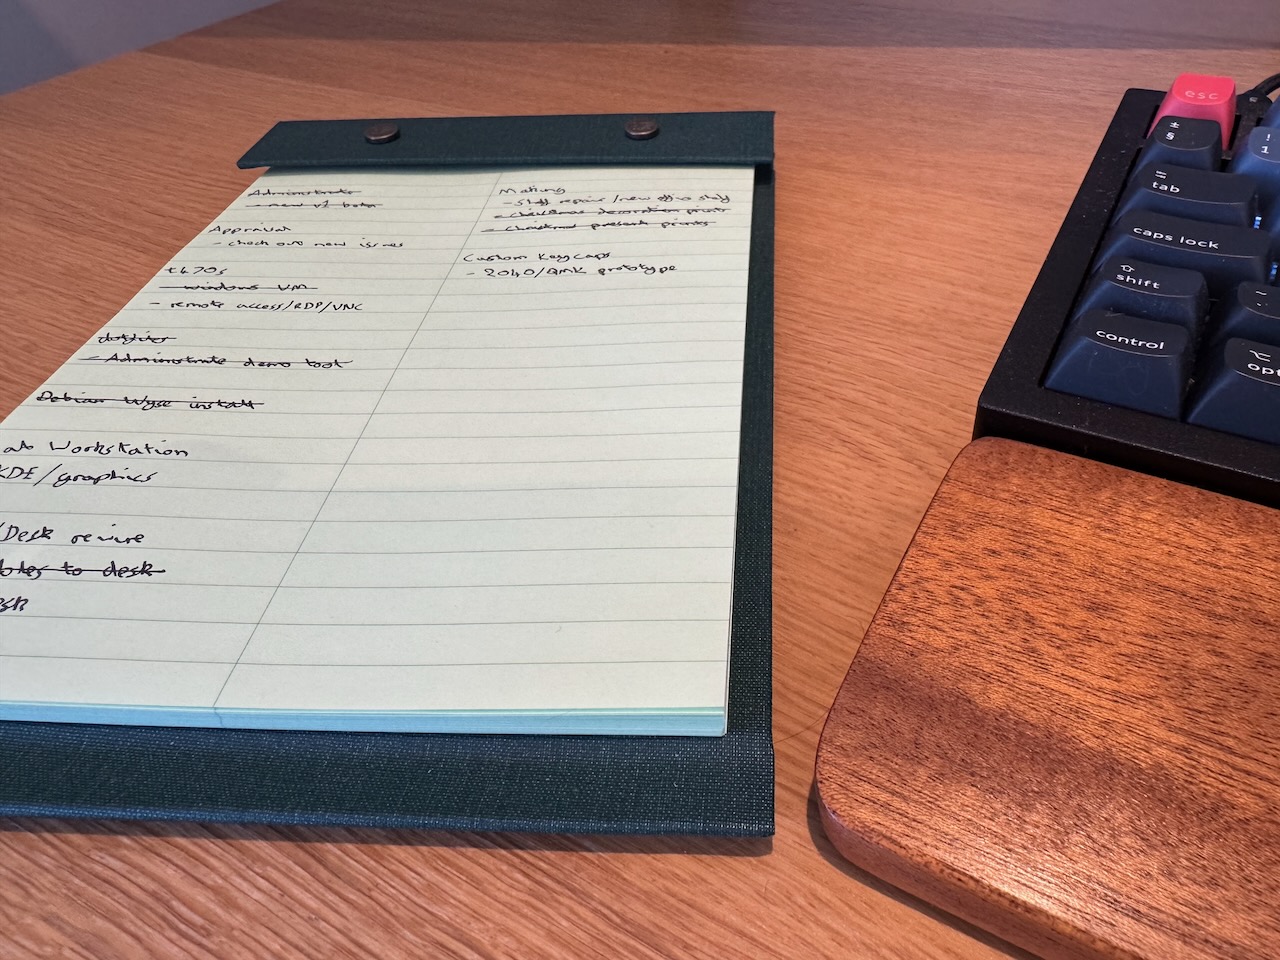 Administrate
- new v1 beta
Appraisal
- check out new issues
t470s
- windows VM
- remote access/RDP/VNC
dotfiles
- Administrate demo tool
Debian Wyse install
Workstation
KDE/graphics
/Desk rewire
to desk
Making
- Shelf repair/new office shelf
- Christmas decoration prints
- Christmas present prints
Custom Keycaps
- 2040/QMK prototype
esc
±
§
!
1
tab
caps lock
shift
~
control
opt